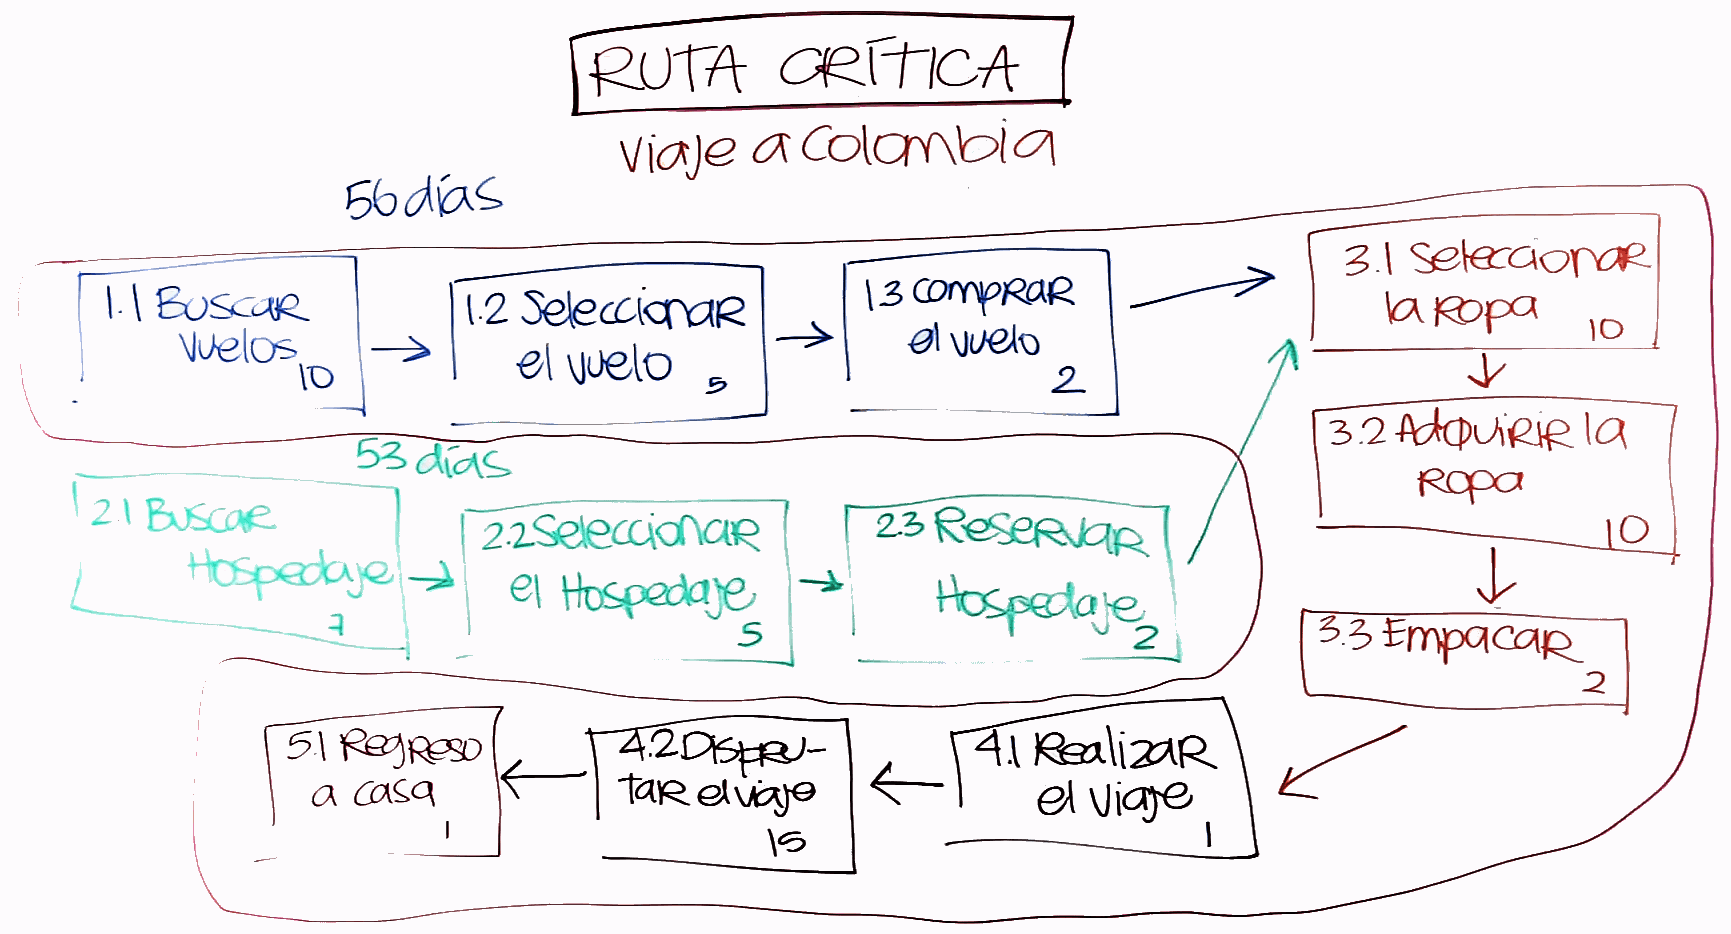 RUTA CRÍTICA
Viaje a Colombia
56 días
1.1 Buscar
Vuelos
10
1.2 Seleccionar
el vuelo
5
1.3 comprar
el vuelo
2
3.1 Seleccionar
la ropa
10
3.2 Adquirir la
ropa
10
3.3 Empacar
2
53 días
2.1 Buscar
Hospedaje
7
2.2 Seleccionar
el Hospedaje
5
2.3 Reservar
Hospedaje
2
4.1 Realizar
el viaje
1
4.2 Disfru-
tar el viaje
15
5.1 Regreso
a casa
1